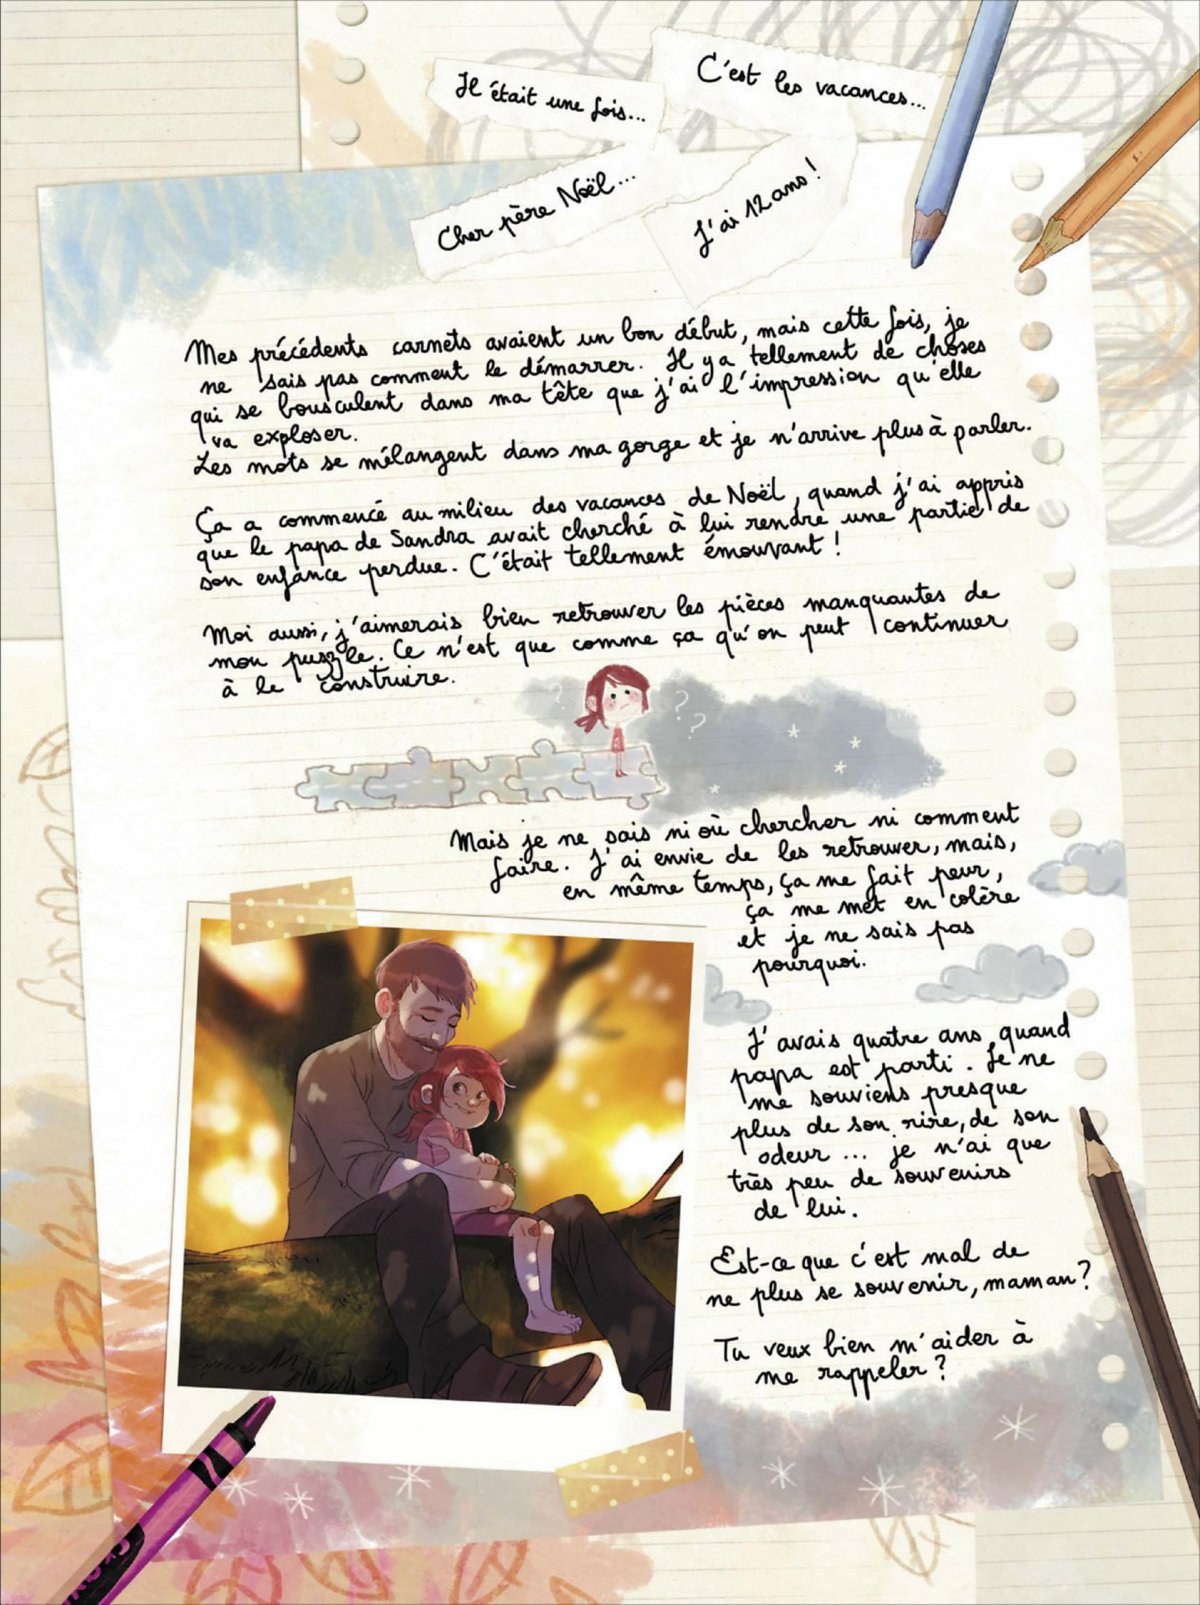 Il était une fois...
C'est les vacances...
Cher père Noël...
J'ai 12 ans !
Mes précédents carnets avaient un bon début, mais cette fois, je
ne sais pas comment le démarrer. Il y a tellement de choses
qui se bousculent dans ma tête que j'ai l'impression qu'elle
va exploser.
Les mots se mélangent dans ma gorge et je n'arrive plus à parler.
Ça a commencé au milieu des vacances de Noël, quand j'ai appris
que le papa de Sandra avait cherché à lui rendre une partie de
son enfance perdue. C'était tellement émouvant !
Moi aussi, j'aimerais bien retrouver les pièces manquantes de
mon puzzle. Ce n'est que comme ça qu'on peut continuer
à le construire.
? ? ?
Mais je ne sais ni où chercher ni comment
faire. J'ai envie de les retrouver, mais,
en même temps, ça me fait peur,
ça me met en colère
et je ne sais pas
pourquoi.
J'avais quatre ans quand
papa est parti. Je ne
me souviens presque
plus de son rire, de son
odeur... je n'ai que
très peu de souvenirs
de lui.
Est-ce que c'est mal de
ne plus se souvenir, maman ?
Tu veux bien m'aider à
me rappeler ?